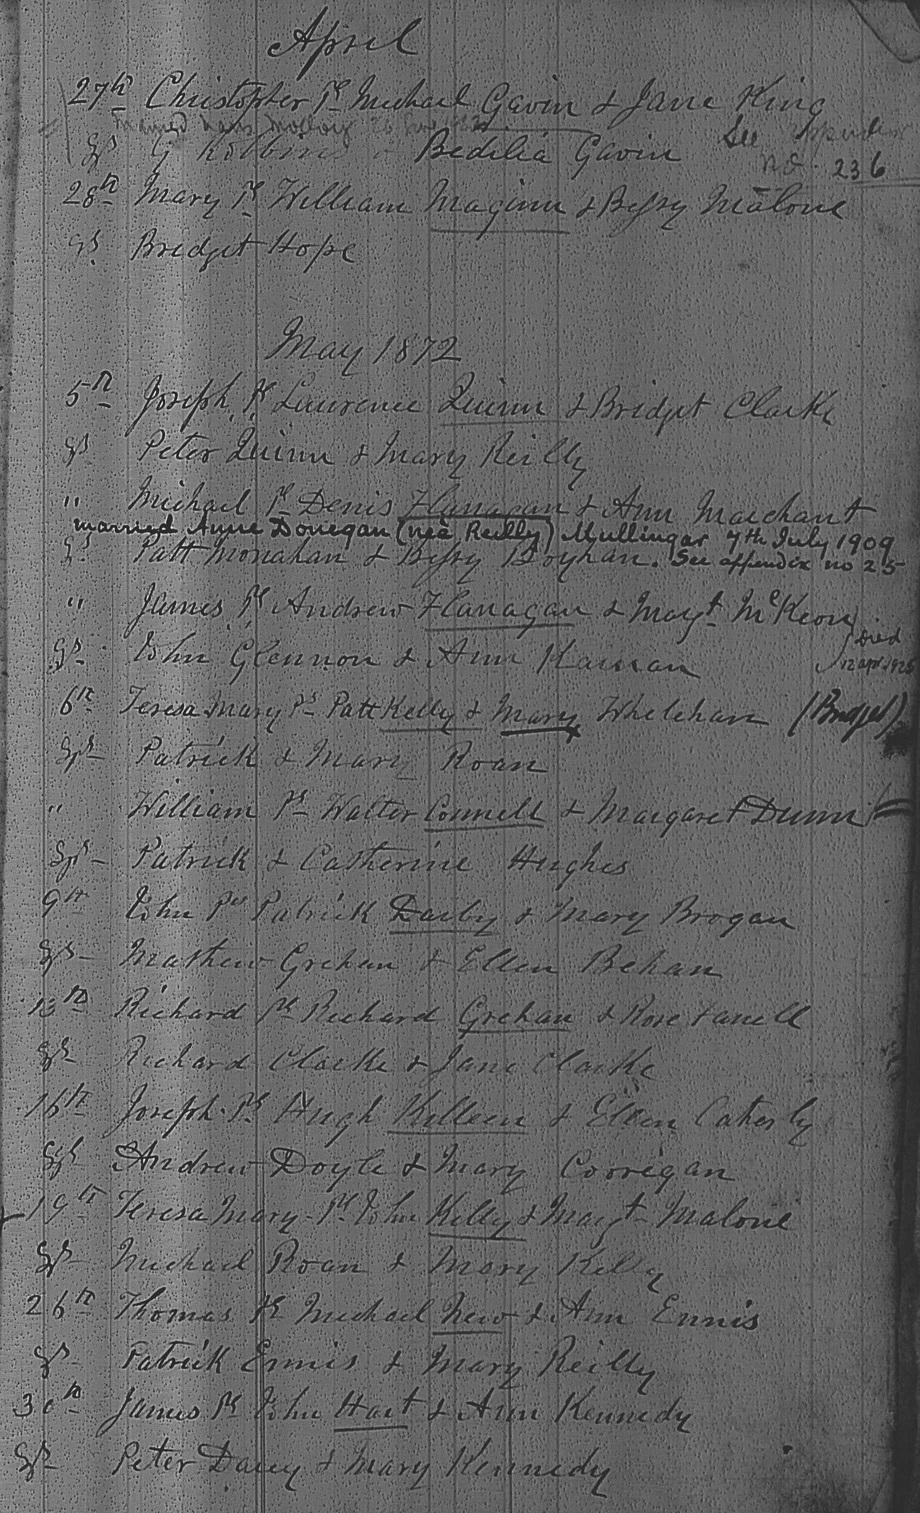 April
27th Christopher Ps Michael Gavin & Jane King
married
Sps G Robbins & Bedilia Gavin See Appendix
No. 236
28th Mary Ps William Maginn & Bessy Malone
Sps Bridget Hope
May 1872
5th Joseph Ps Laurence Quinn & Bridget Clarke
Sps Peter Quinn & Mary Reilly
" Michael Ps Denis Flanagan & Ann Marchant
married Anne Donegan (neé Reilly) Mullingar 7th July 1909
Sps Patt Monahan & Bessy Boyhan. See appendix no 25
" James Ps Andrew Flanagan & Mayt McKeon
Died
Sps John Glennon & Ann Kainan
12 apr 1925
6th Teresa Mary Ps Patt Kelly & Mary Whelehan (Bridget)
Sps Patrick & Mary Roan
" William Ps Walter Connell & Margaret Dunn
Sps Patrick & Catherine Hughes
9th John Ps Patrick Darby & Mary Brogan
Sps Mathew Grehan & Ellen Behan
13th Richard Ps Richard Grehan & Rose Fanell
Sps Richard Clarke & Jane Clarke
16th Joseph Ps Hugh Killeen & Ellen Caherly
Sps Andrew Doyle & Mary Coorigan
19th Teresa Mary Ps John Kelly & Mayt Malone
Sps Michael Roan & Mary Kelly
26th Thomas Ps Michael New & Ann Ennis
Sps Patrick Ennis & Mary Reilly
30th James Ps John Hart & Ann Kennedy
Sps Peter Darcy & Mary Kennedy